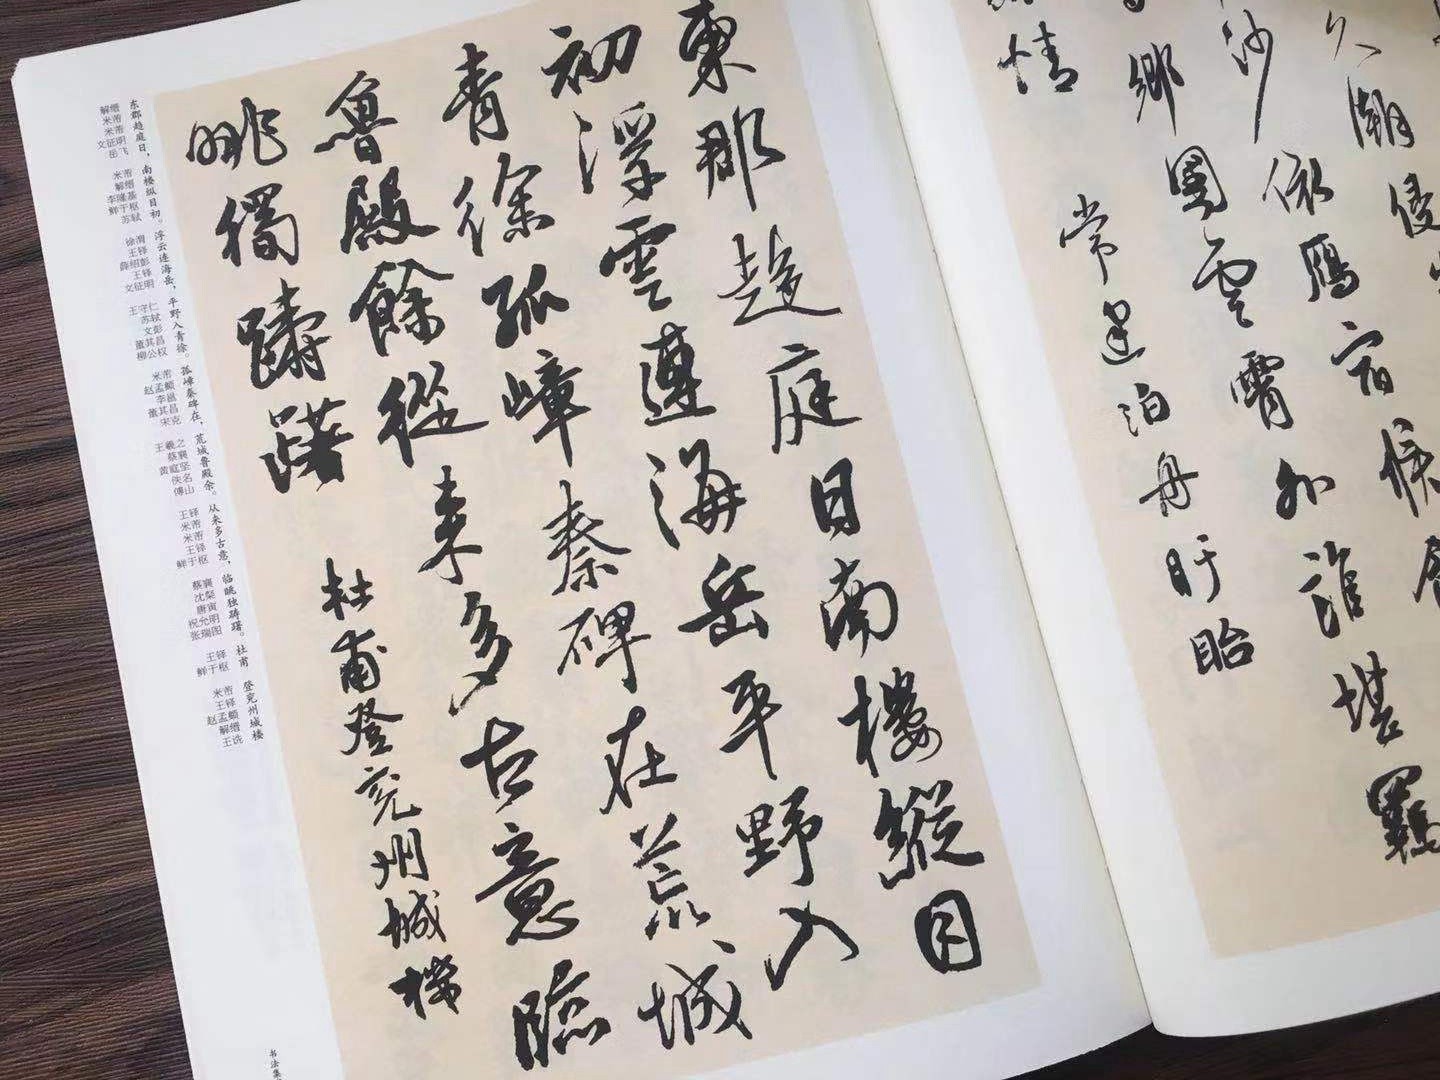 東郡趨庭日南樓縱目
初浮雲連海岳平野入
青徐孤嶂秦碑在荒城
魯殿餘從来多古意臨
眺獨躊躇
杜甫登兗州城樓
东郡趋庭日，南楼纵目初。浮云连海岳，平野入青徐。孤嶂秦碑在，荒城鲁殿余。从来多古意，临眺独踌躇。杜甫 登兖州城楼
解缙
米芾
米芾
文征明
岳飞
米芾
解缙
李隆基
鲜于枢
苏轼
徐渭
王铎
薛绍彭
王铎
文征明
王守仁
苏轼
文彭
董其昌
柳公权
米芾
赵孟頫
李邕
董其昌
宋克
王羲之
蔡襄
黄庭坚
佚名
傅山
王铎
米芾
米芾
王铎
鲜于枢
蔡襄
沈粲
唐寅
祝允明
张瑞图
王铎
鲜于枢
米芾
王铎
赵孟頫
解缙
王诜
书法集
久潮侵
沙依雁宿候
鄉國雲霄外誰堪羈
情
常建泊舟盱眙